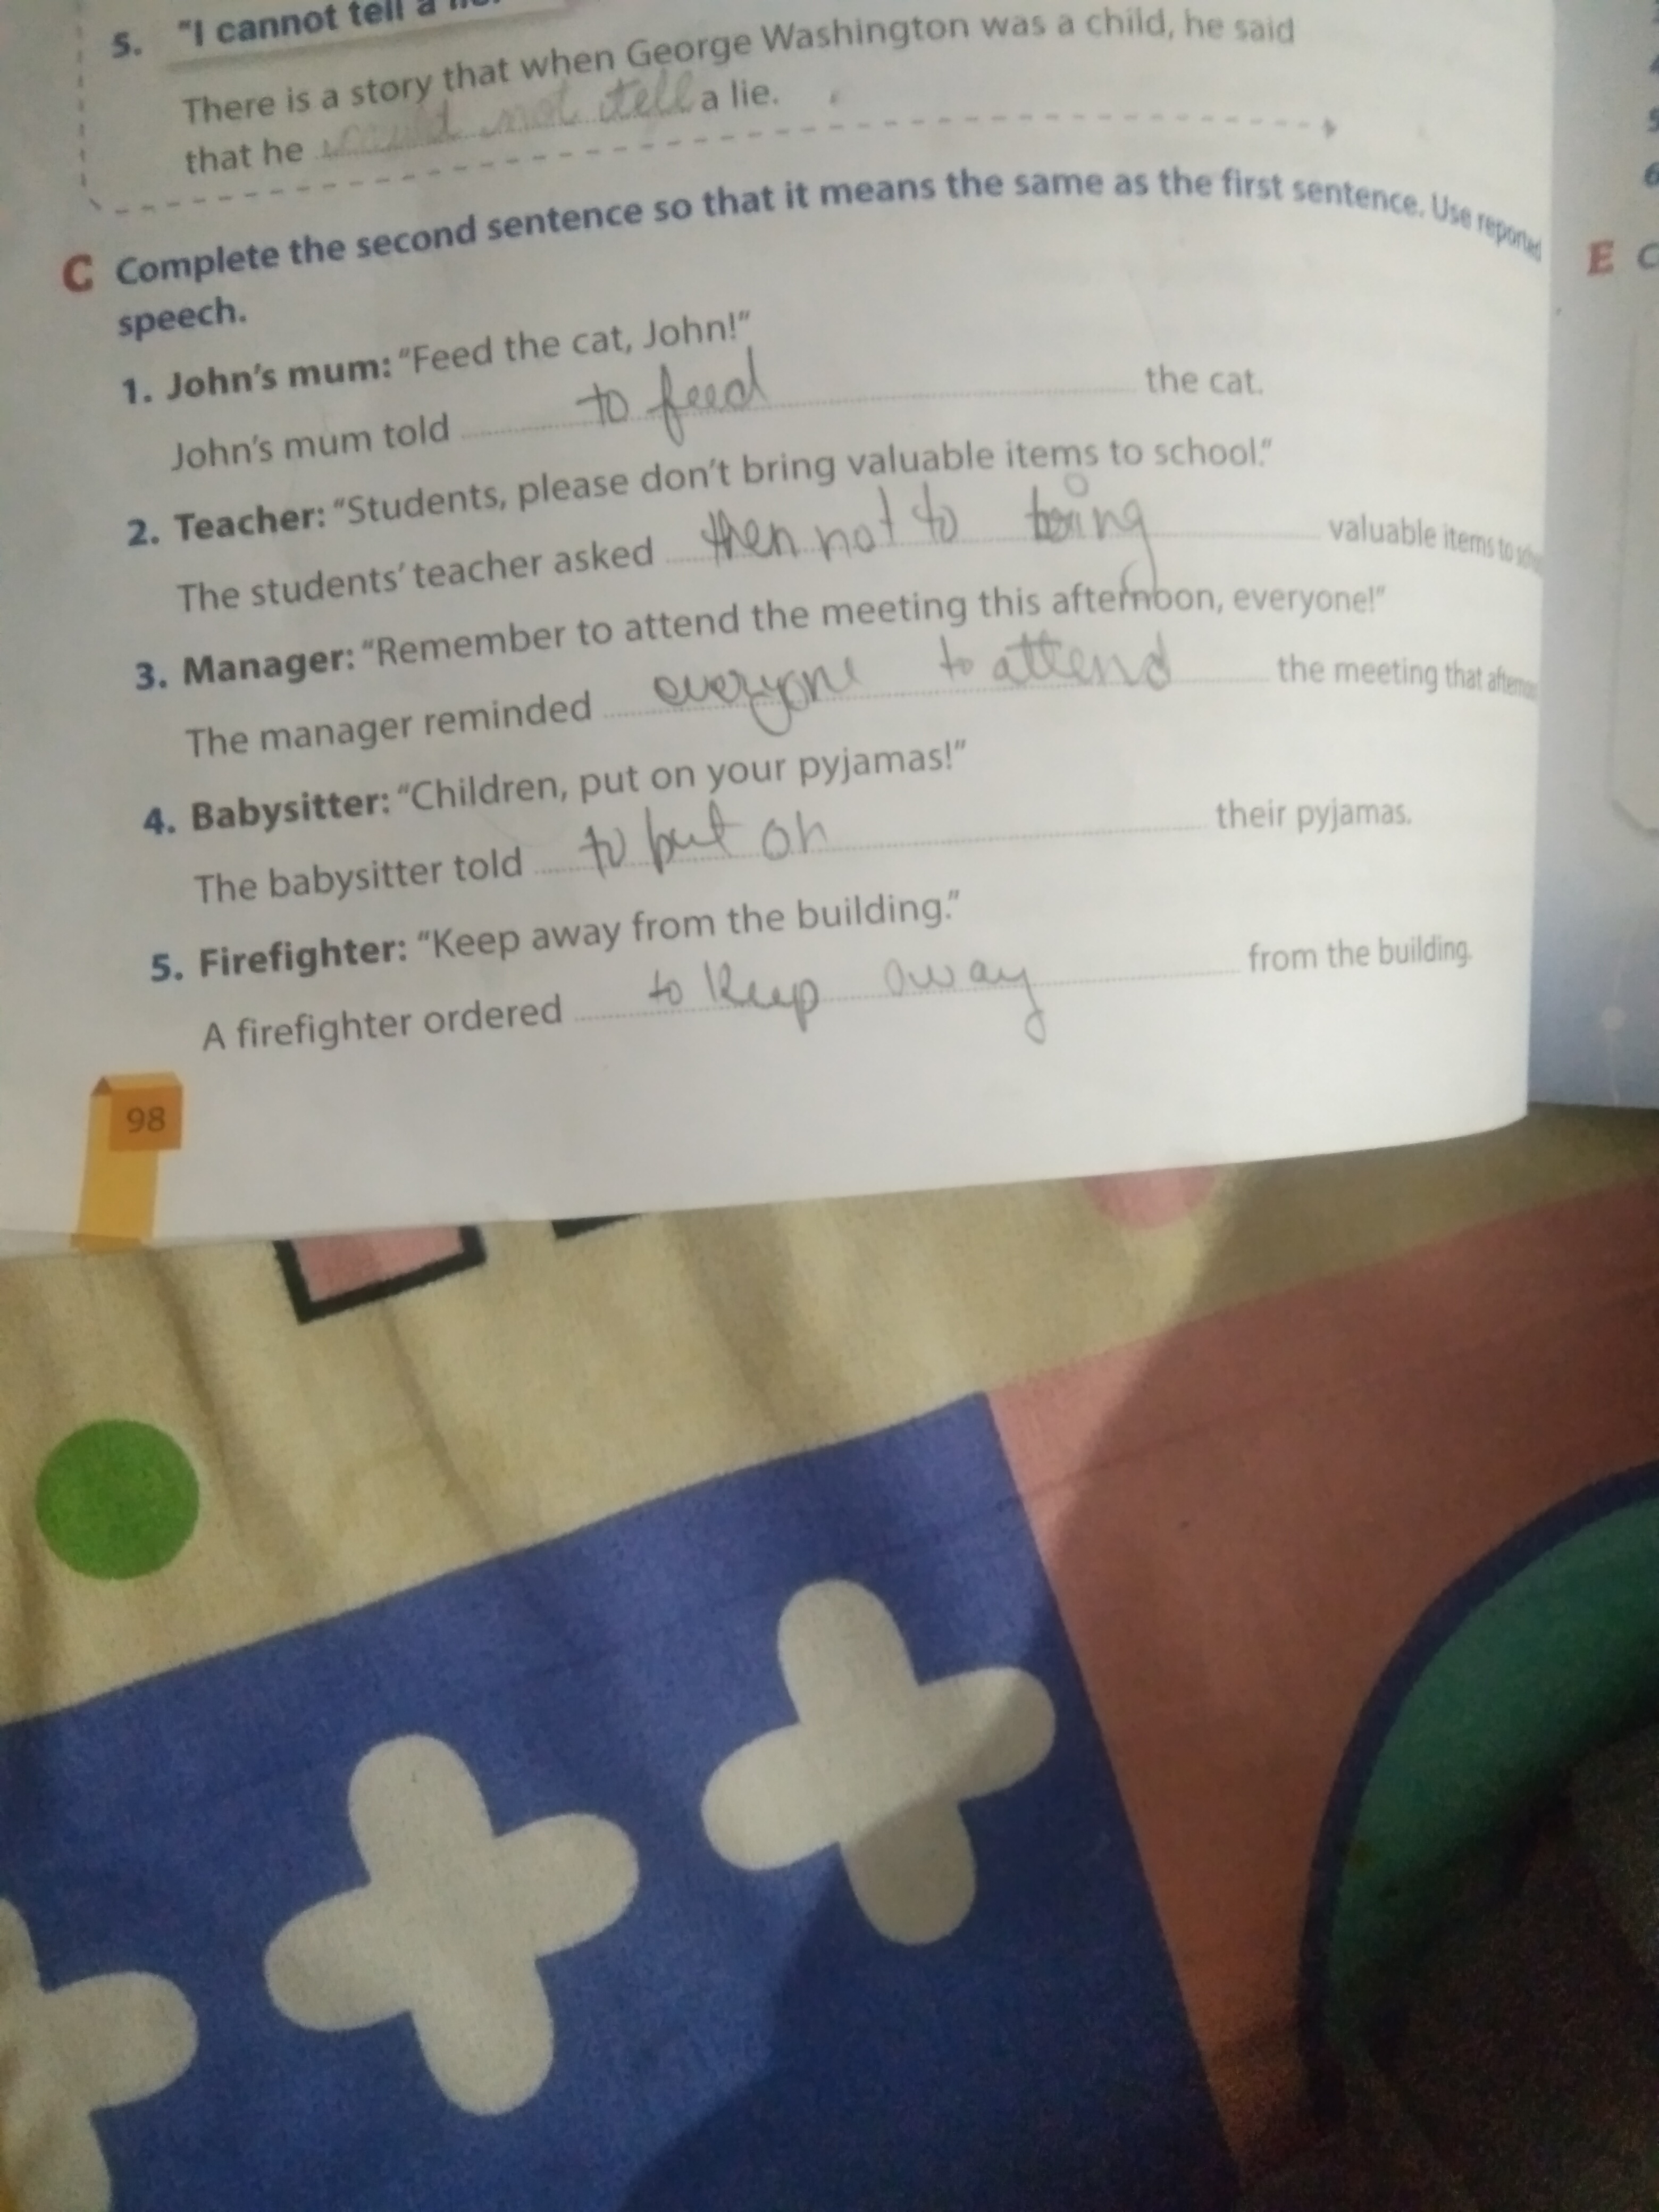 5. "I cannot tell a lie.
There is a story that when George Washington was a child, he said
that he could not tell a lie.
C Complete the second sentence so that it means the same as the first sentence. Use reported
speech.
1. John's mum: "Feed the cat, John!"
John's mum told to feed the cat.
2. Teacher: "Students, please don't bring valuable items to school."
The students' teacher asked then not to bring valuable items to
3. Manager: "Remember to attend the meeting this afternoon, everyone!"
The manager reminded everyone to attend the meeting that afternoon
4. Babysitter: "Children, put on your pyjamas!"
The babysitter told to but on their pyjamas.
5. Firefighter: "Keep away from the building."
A firefighter ordered to keep away from the building.
98
5
6
E C